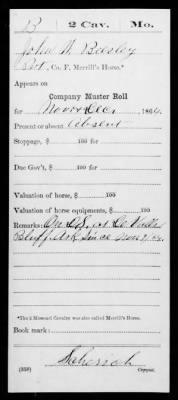 B | 2 Cav. | Mo.
John W. Beasley
Pvt, Co. F, Merrill's Horse.*
Appears on
Company Muster Roll
for Nov & Dec, 1864.
Present or absent Absent
Stoppage, $ 100 for
Due Gov't, $ 100 for
Valuation of horse, $ 100
Valuation of horse equipments, $ 100
Remarks: On D.S. at
Bluff, Ark since Nov
*The 2 Missouri Cavalry was also called Merrill's Horse.
Book mark:
(358)
Copyist.